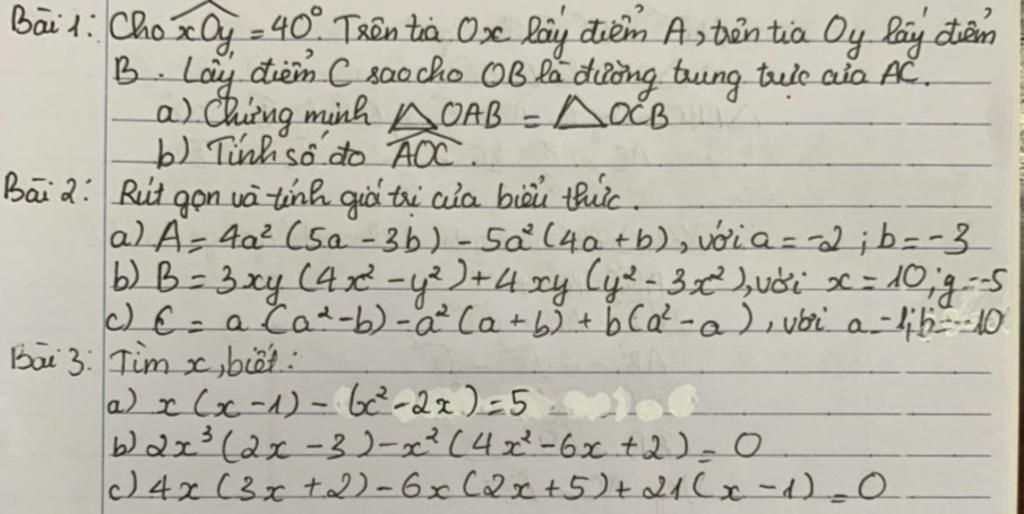 Bài 1: Cho xOy = 40°. Trên tia Ox lấy điểm A, trên tia Oy lấy điểm
B. Lấy điểm C sao cho OB là đường trung trực của AC.
a) Chứng minh △OAB = △OCB
b) Tính số đo AOC.
Bài 2: Rút gọn và tính giá trị của biểu thức.
a) A = 4a² (5a - 3b) - 5a² (4a + b), với a = -2 ; b = -3
b) B = 3xy (4x² - y²) + 4xy (y² - 3x²), với x = 10; y = -5
c) C = a (a² - b) - a² (a + b) + b (a² - a), với a = 1; b = -10
Bài 3: Tìm x, biết:
a) x (x - 1) - (x² - 2x) = 5
b) 2x³ (2x - 3) - x² (4x² - 6x + 2) = 0
c) 4x (3x + 2) - 6x (2x + 5) + 21 (x - 1) = 0